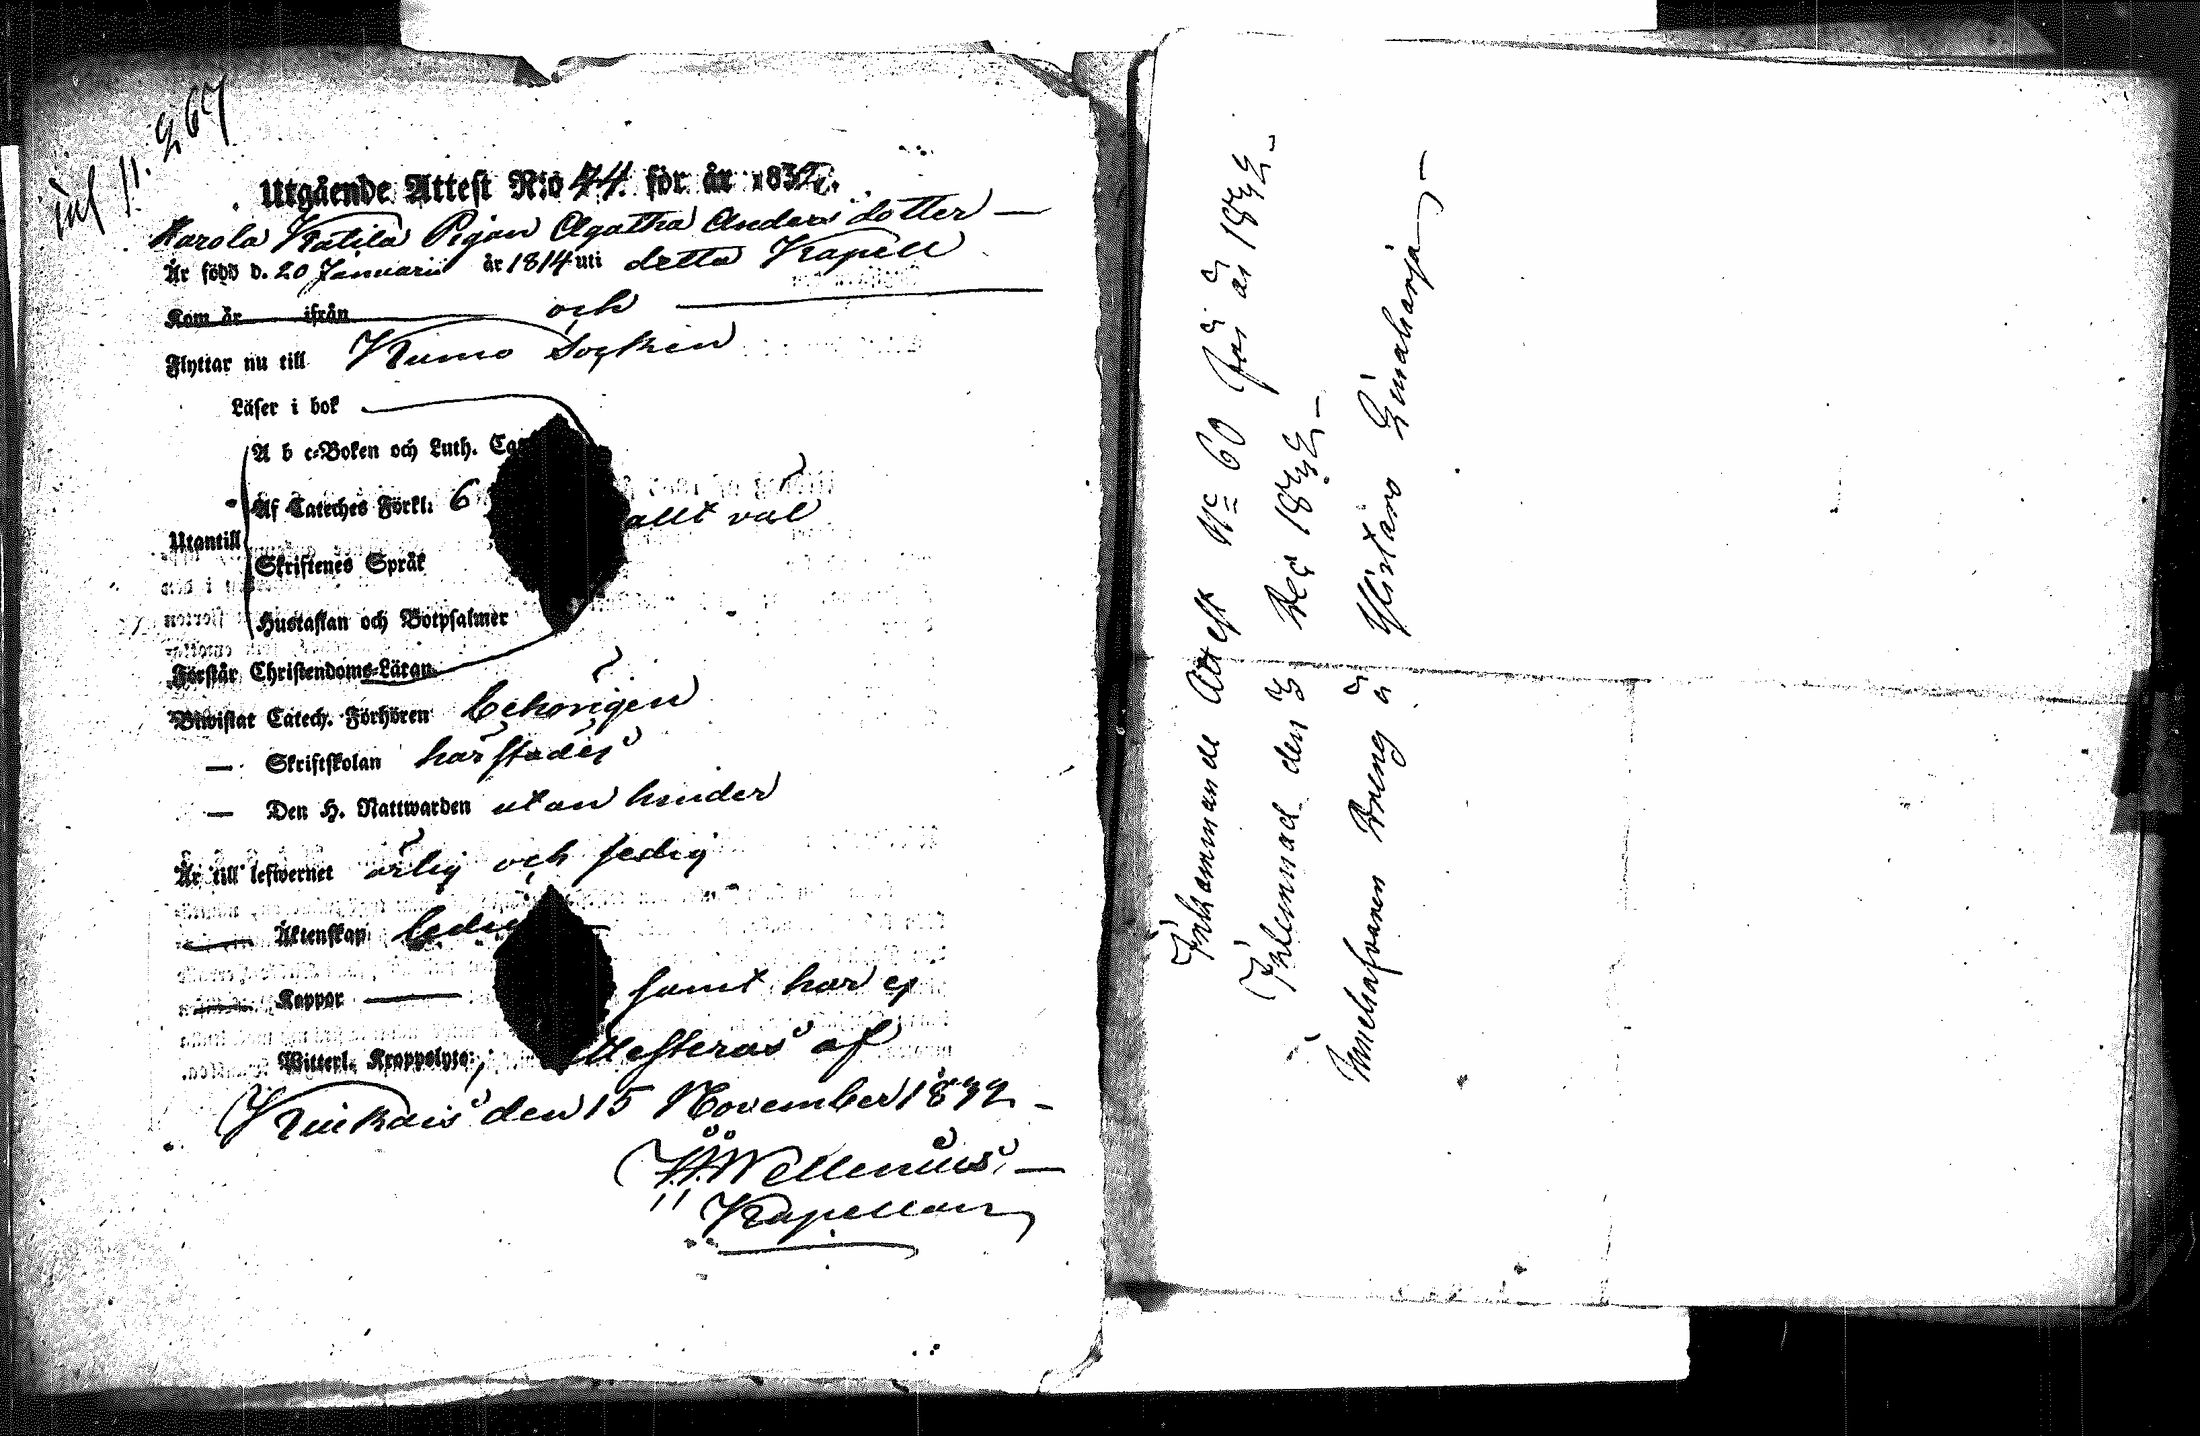 inf 11. 267
Utgående Attest N:o 44. för år 1832.
Karola Katila Pigan Agatha Anders dotter —
Är född d. 20 Januarii år 1814 uti detta Kapell
Kom år ifrån och
Flyttar nu till Kumo Socken
Läser i bok
A b c-Boken och Luth. Ca
Af Cateches Förkl: 6
allt väl
Utantill
Skriftenes Språk
Hustaflan och Botpsalmer
Förstår Christendoms-Läran
Biwistat Catech. Förhören behörigen
— Skriftskolan härstädes
— Den H. Nattwarden utan hinder
Är till lefwernet ärlig och sedig
Äktenskap ledig
Koppor — samt har ej
Witterl. Kroppslyte; attesteras af
Kiukais den 15 November 1832 —
Wellenius, —
Kapellan
Inkommande Attest No 60 för år 1832 —
Inlemnad den 3 Dec 1832 —
Innehafvaren Dreng å